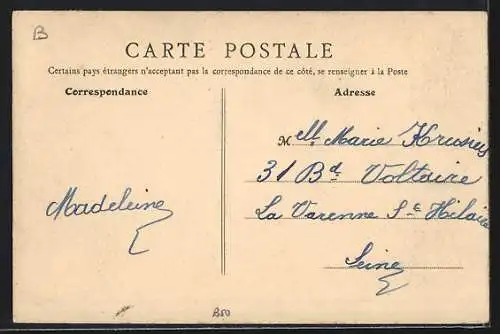 B
CARTE POSTALE
Certains pays étrangers n'acceptant pas la correspondance de ce côté, se renseigner à la Poste
Correspondance
Adresse
Melle Marie
31 Bd Voltaire
La Varenne St Hilaire
Seine
Madeleine
B50